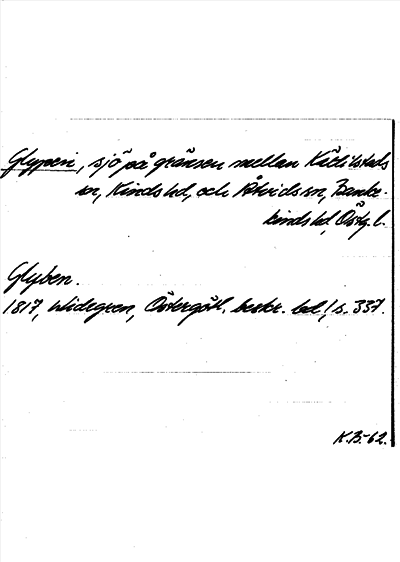 Glypen, sjö på gränsen mellan Kättilstads
sn, Kinds hd, och Åtvids sn, Banke-
kinds hd, Östg. l.
Glyben.
1817, Widegren, Östergötl. beskr. bd 1 s. 337.
K.B.-62.